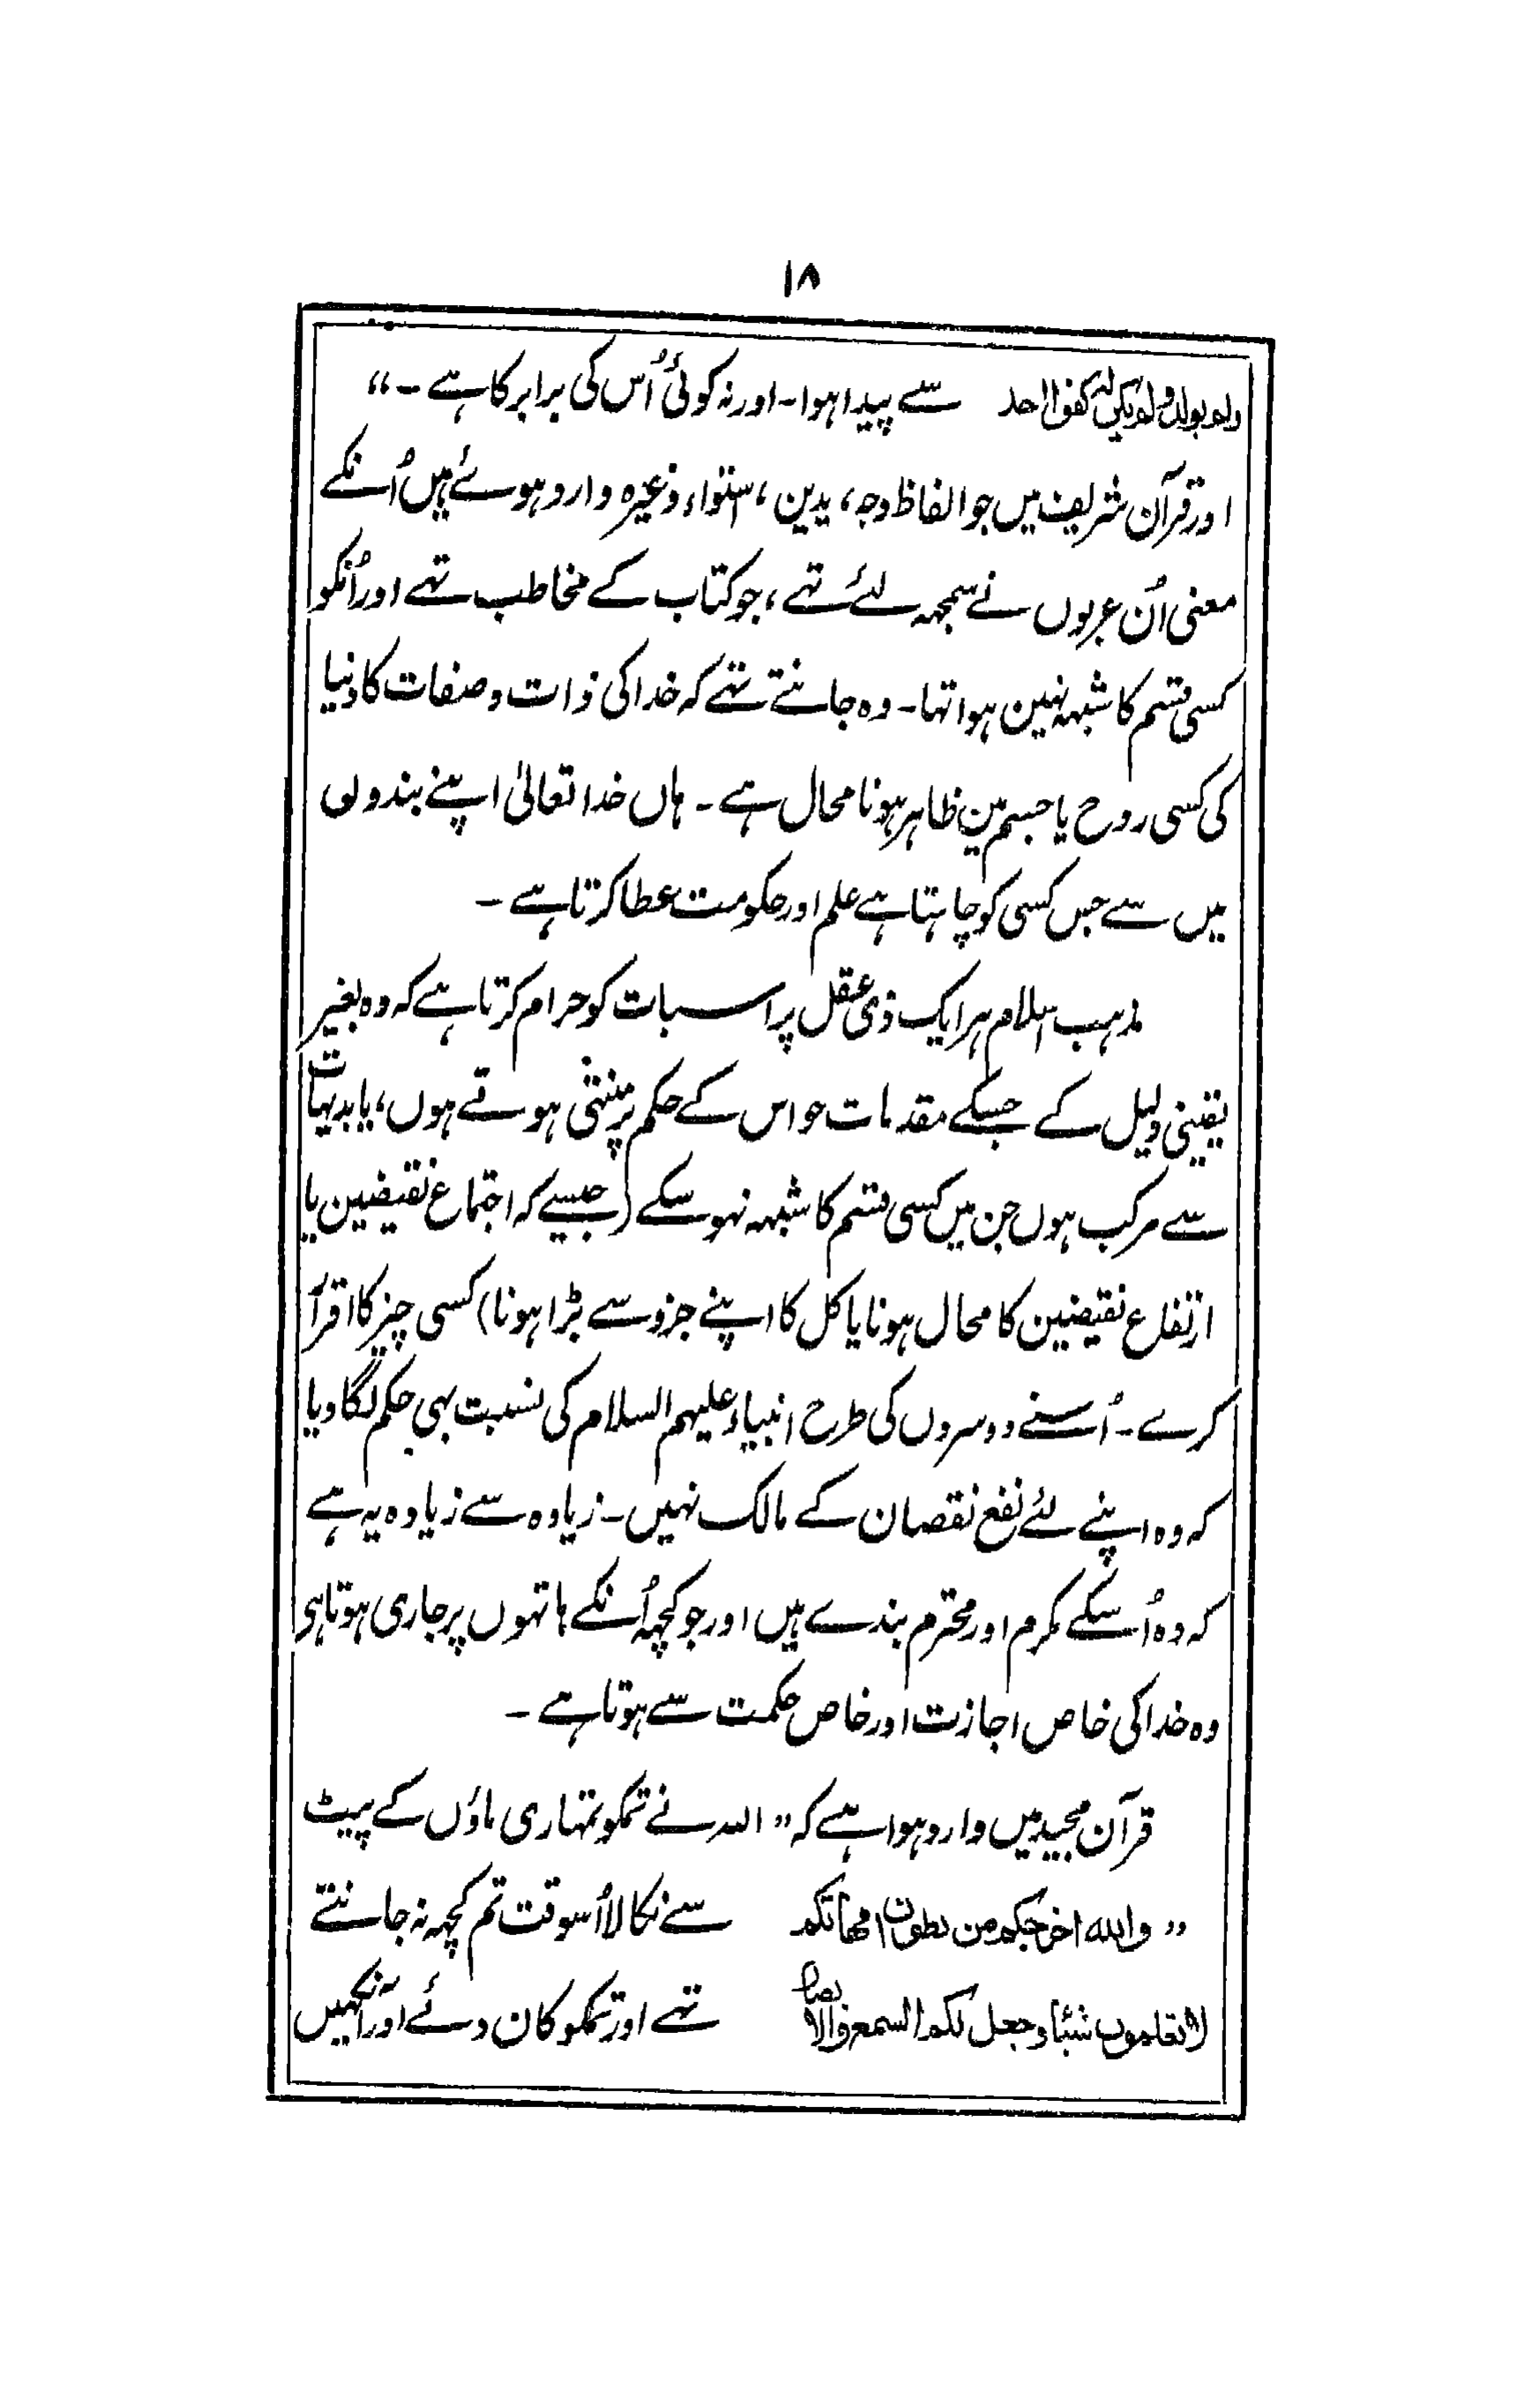 ۱۸
ولم یولد ولم یکن له کفوا احد سے پیدا ہوا۔ اور نہ کوئی اُس کی برابر کا ہے ۔"
اور قرآن شریف میں جو الفاظ وجہ، یدین، استواء وغیرہ وارد ہوئے ہیں اُنکے
معنی اُن عربوں نے سمجہہ لئے تہے، جو کتاب کے مخاطب تہے اور اُنکو
کسی قسم کا شبہہ نہین ہوا تہا۔ وہ جانتے تہے کہ خدا کی ذات و صفات کا دنیا
کی کسی روح یا جسم مین ظاہر ہونا محال ہے ۔ ہاں خدا تعالیٰ اپنے بندوں
میں سے جس کسی کو چاہتا ہے علم اور حکومت عطا کرتا ہے ۔
مذہب اسلام ہر ایک ذی عقل پر اسبات کو حرام کرتا ہے کہ وہ بغیر
یقینی دلیل کے جسکے مقدمات حواس کے حکم پر منتہی ہوتے ہوں، یا بدیہات
سے مرکب ہوں جن میں کسی قسم کا شبہہ نہو سکے (جیسے کہ اجتماع نقیضین یا
ارتفاع نقیضین کا محال ہونا یا کل کا اپنے جزو سے بڑا ہونا) کسی چیز کا اقرار
کرے۔ اُسنے دوسروں کی طرح انبیاء علیہم السلام کی نسبت بہی حکم لگا دیا
کہ وہ اپنے لئے نفع نقصان کے مالک نہیں۔ زیادہ سے زیادہ یہ ہے
کہ وہ اُسکے مکرم اور محترم بندے ہیں اور جو کچہہ اُنکے ہاتہوں پر جاری ہوتا ہی
وہ خدا کی خاص اجازت اور خاص حکمت سے ہوتا ہے ۔
قرآن مجید میں وارد ہوا ہے کہ " اللہ نے تمکو تمہاری ماؤں کے پیٹ
" والله اخرجکم من بطون امهاتکم سے نکالا اُسوقت تم کچہہ نہ جانتے
لا تعلمون شیئا وجعل لکم السمع والابصار تہے اور تمکو کان دئے اور آنکہیں